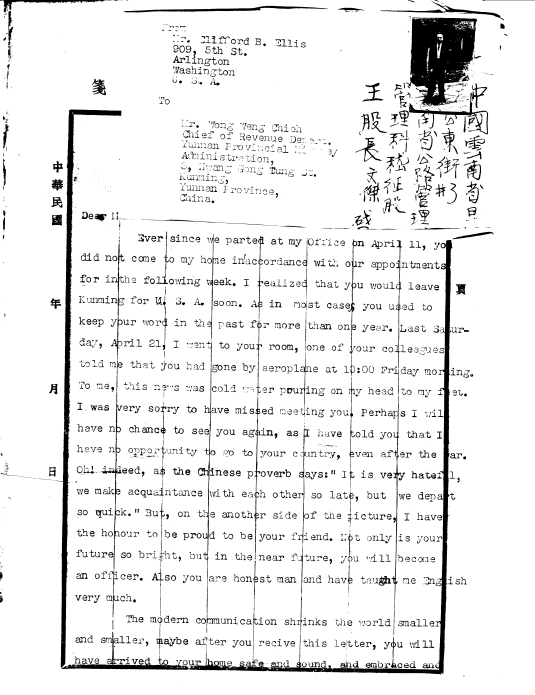 From
Mr. Clifford B. Ellis
909, 5th St.
Arlington
Washington
U. S. A.
To
Mr. Wong Weng Chieh
Chief of Revenue
Yunnan Provincial
Administration,
Gong Tung St.
Kunming,
Yunnan Province,
China.
中國雲南省
公東街#3
南省公路管理
管理科稽征股
王股長文傑
箋
中華民國
年
月
日
頁
Dear
Ever since we parted at my Office on April 11, you
did not come to my home in accordance with our appointments
for in the following week. I realized that you would leave
Kunming for U. S. A. soon. As in most cases you used to
keep your word in the past for more than one year. Last Satur-
day, April 21, I went to your room, one of your colleagues
told me that you had gone by aeroplane at 10:00 Friday morning.
To me, this news was cold water pouring on my head to my feet.
I was very sorry to have missed meeting you. Perhaps I will
have no chance to see you again, as I have told you that I
have no opportunity to go to your country, even after the war.
Oh! indeed, as the Chinese proverb says:" It is very hateful,
we make acquaintance with each other so late, but we depart
so quick." But, on the another side of the picture, I have
the honour to be proud to be your friend. Not only is your
future so bright, but in the near future, you will become
an officer. Also you are honest man and have taught me English
very much.
The modern communication shrinks the world smaller
and smaller, maybe after you recive this letter, you will
have arrived to your home safe and sound, and embraced and